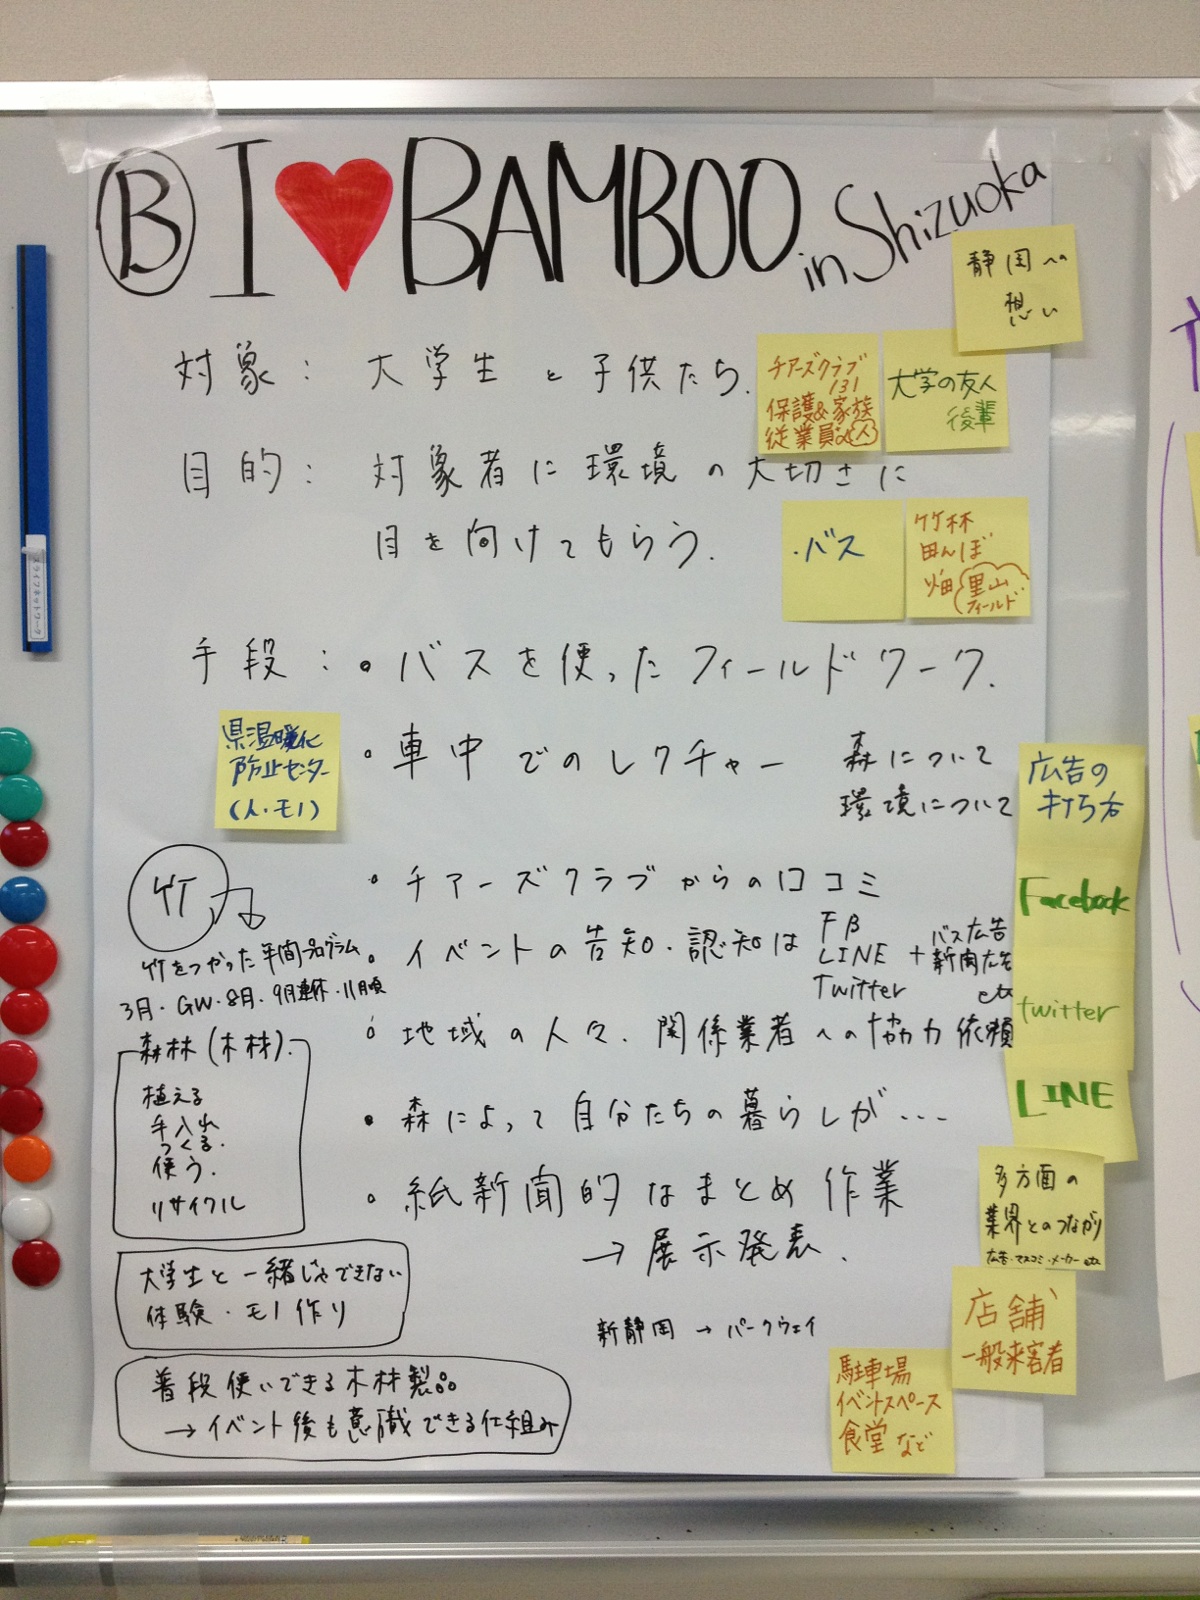 B I ♥ BAMBOO in Shizuoka
静岡への
想い
対象: 大学生と子供たち.
チアーズクラブ
131
保護&家族
従業員 人
大学の友人
後輩
目的: 対象者に環境の大切さに
目を向けてもらう.
・バス
竹林
田んぼ
畑 里山
フィールド
手段: • バスを使ったフィールドワーク.
県温暖化
防止センター
(人・モノ)
• 車中でのレクチャー 森について
環境について
広告の
打ち方
Facebook
twitter
LINE
• チアーズクラブからの口コミ
竹
竹をつかった年間プログラム
3月・GW・8月・9月連休・11月頃
• イベントの告知・認知は FB
LINE + バス広告
Twitter 新聞広告
etc
• 地域の人々、関係業者への協力依頼
森林(木材).
植える
手入れ
つくる.
使う.
リサイクル
• 森によって自分たちの暮らしが...
• 紙新聞的なまとめ作業
→ 展示発表.
多方面の
業界とのつながり
広告・マスコミ・メーカー etc
大学生と一緒じゃできない
体験・モノ作り
新静岡 → パークウェイ
店舗
一般来客者
普段使いできる木材製品
→ イベント後も意識できる仕組み
駐車場
イベントスペース
食堂 など
スライフネットワーク